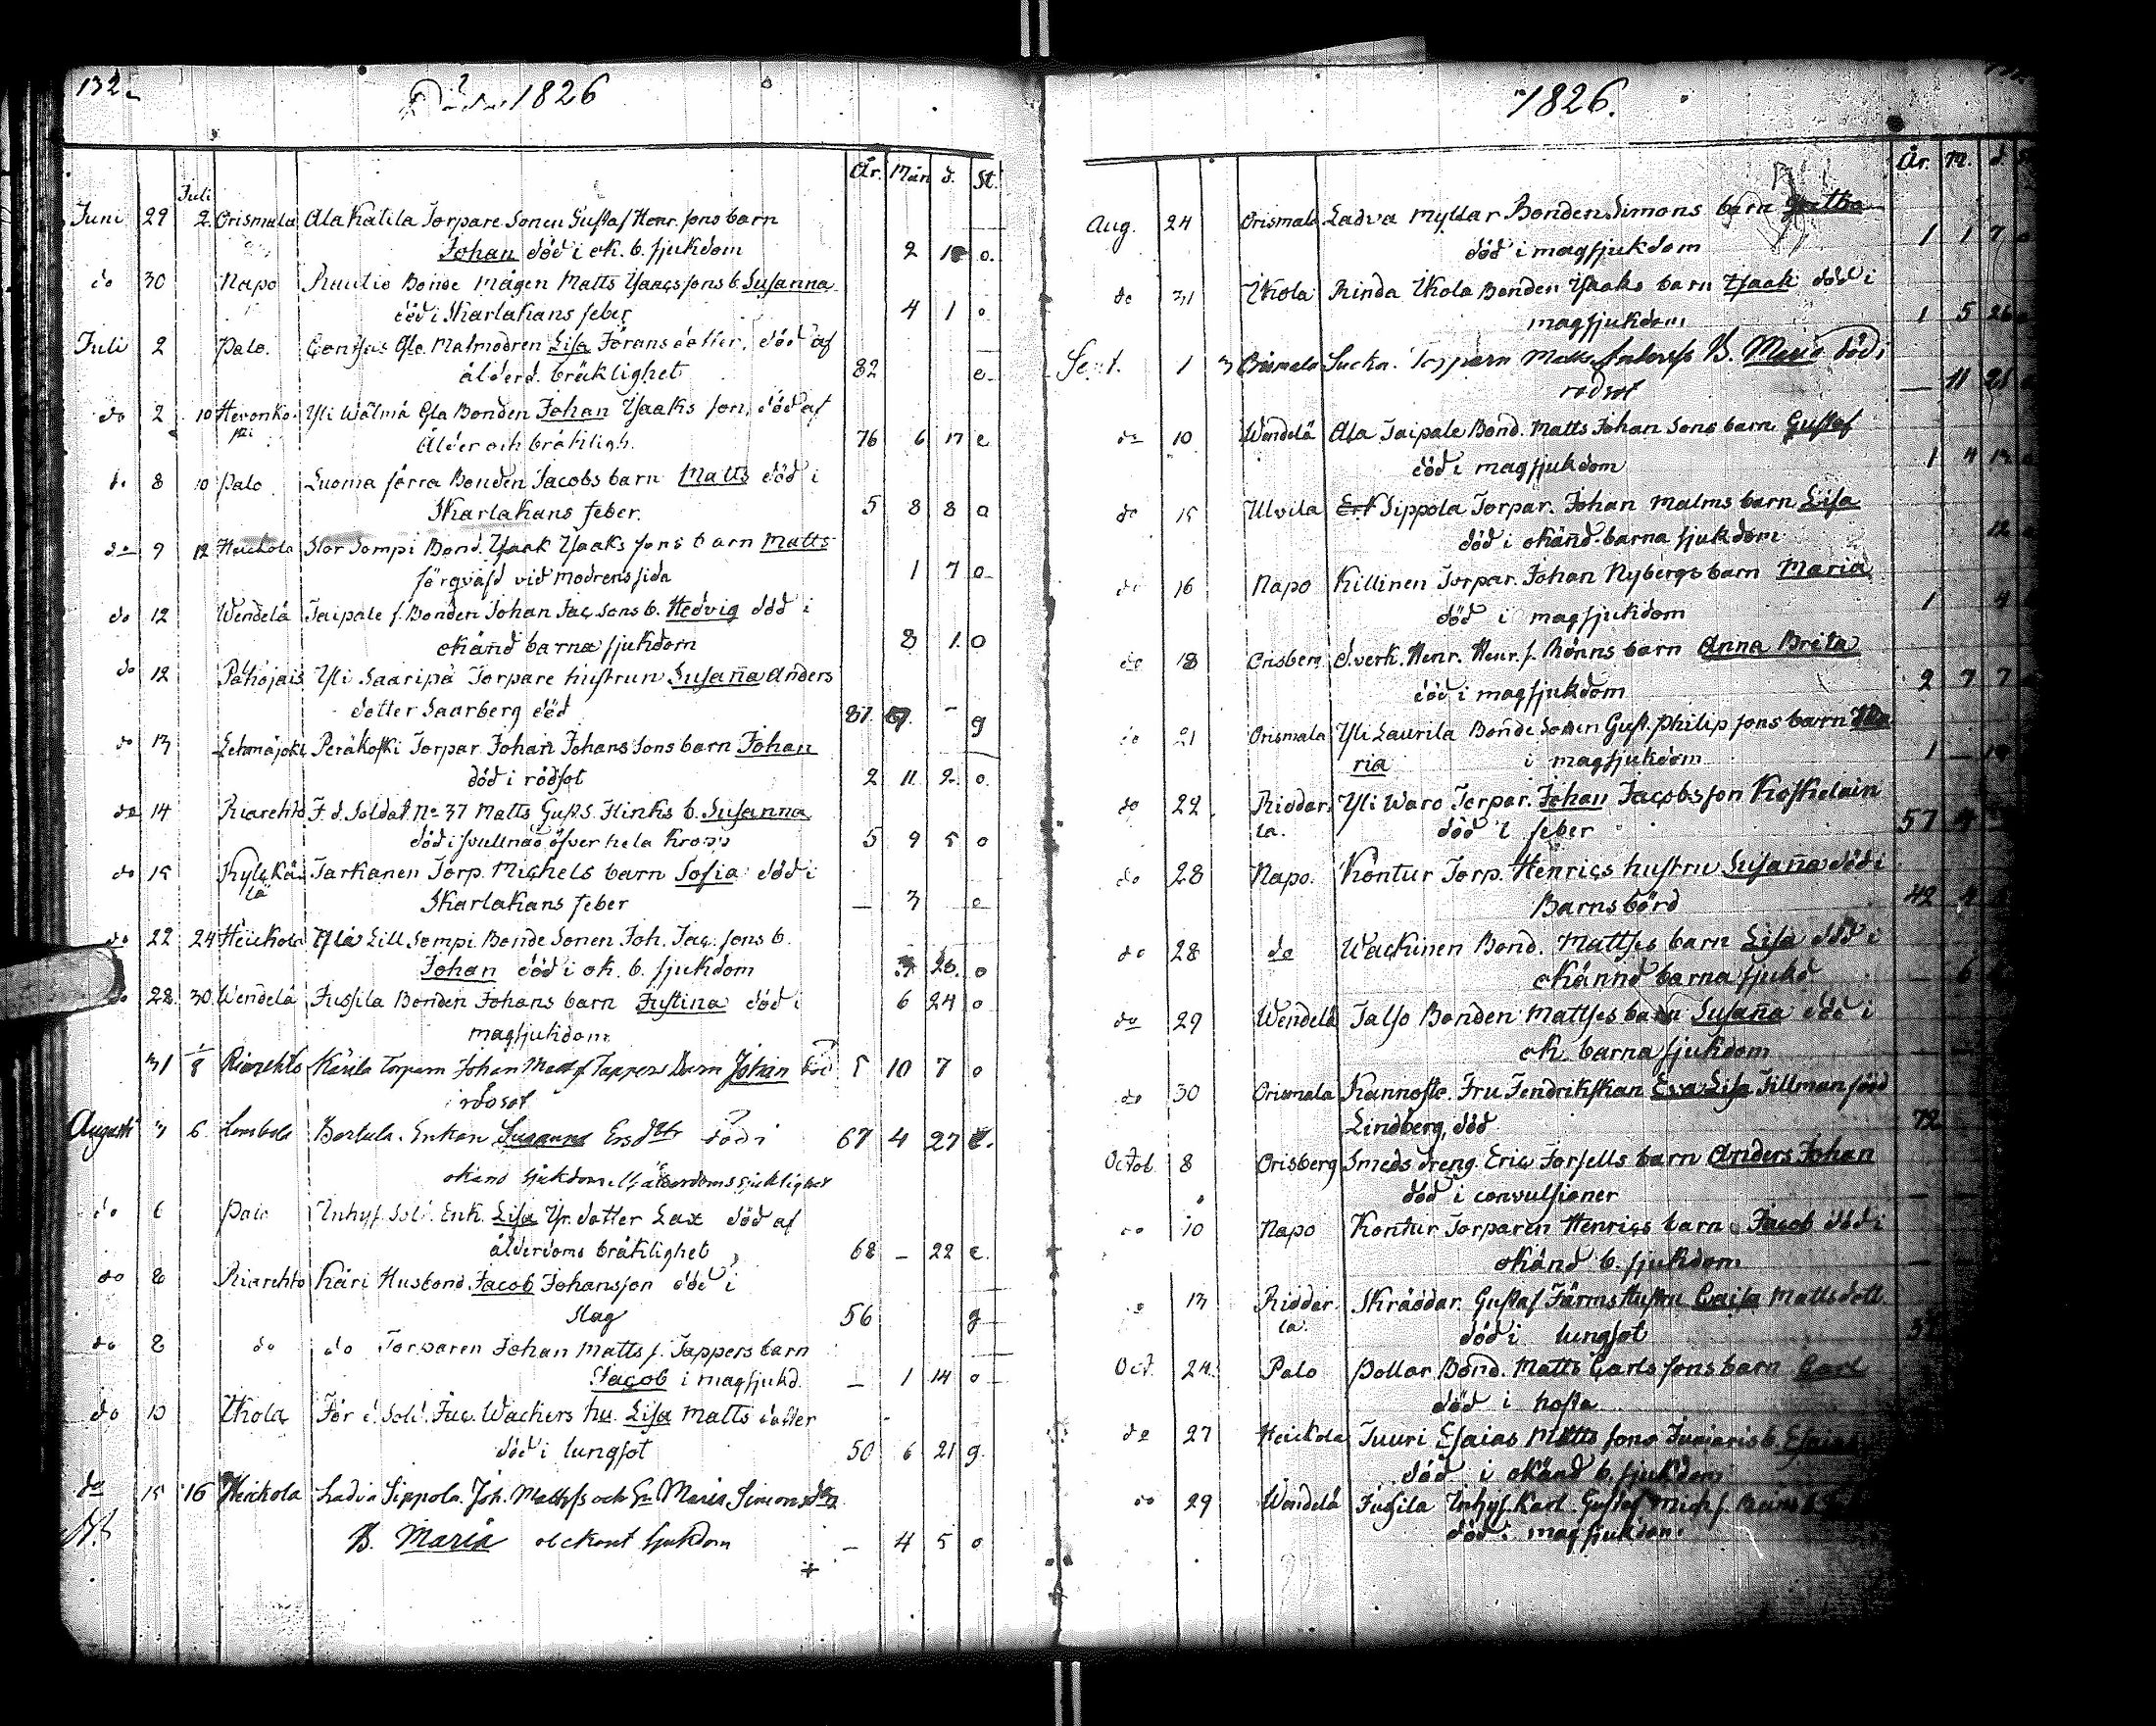 132
Döde 1826
År. Mån d. St.
Juli
Juni 29 2 Orismala Ala Katila Torpare Sonen Gustaf Henr. sons barn
Johan död i ok. b. sjukdom 2 o.
do 30 Napo Rautio Bonde mågen Matts Ysaacs sons b. Susanna
död i Skarlakans feber 4 1 o
Juli 2 Palo. Gla. Matmodren Lisa Jörans dotter, död af
ålderd. bräklighet 82 e
do 2 10 Hevonko- Yli Wälmä Gla Bonden Johan Ysaaks son, död af
Ålder och bräkligh. 76 6 17 e
do 8 10 Palo Luoma förra Bonden Jacobs barn Matts död i
Skarlakans feber. 5 8 8 o
do 9 12 Heickola Stor Sompi Bond. Ysaak Ysaaks sons barn Matts
förqväfd vid modrens sida 1 7 o
do 12 Wendelä Taipale f. Bonden Johan Jac. sons b. Hedvig död i
okänd barna sjukdom 8 1. o
do 12 Pähöjais Yli Saaripä Torpare hustrun Susaña Anders
dotter Saarberg död g
do 13 Lehmäjoki Peräkoski Torpar. Johan Johans sons barn Johan
död i rödsot 2 11 2 o
do 14 Riarehto F. d. Soldat No 37 Matts Gust. S. Flinks b. Susanna
död i svullnad öfver hela kropp 5 9 5 o
do 15 Kylckä- Tarkanen Torp. Michels barn Sofia död i
lä
Skarlakans feber — 3 o
do 22 24 Heickola Lill Sompi Bonde Sonen Joh. Jac. sons b.
Johan död i ok. b. sjukdom 26. o
do 28 30 Wendelä Jussila Bonden Johans barn Justina död i 6 24 o
magsjukdom
31 1/8 Riarehto Käril Torparn Johan Mattss Tappers barn Johan död 5 10 7 o
i rödsot
Augusti 3 6 Bertula Enkan Susanna Ersdttr död i 67 4 27 e.
okänd sjukdom
do 6 Palo Inhys. Sold. Enk. Lisa Yr. dotter Lax död af
ålderdoms bräklighet 68 — 22 e.
do 8 Riarehto Käri Husbond. Jacob Johansson död i
slag 56 g
do 8 do do Torparen Johan Matts s. Tappers barn
Jacob i magsjukd. — 1 14 o
do 10 Ikola För d. Sold. Jac. Wackers hu. Lisa Matts dotter
död i lungsot 50 6 21 g.
do 15 16 Heickola Ladva Sippola Joh. Mattss och Maria Simonsdr
B. Maria obekant sjukdom — 4 5 o
1826.
År. M. d.
Aug. 24 Orismala Ladva Myllar Bonden Simons barn
död i magsjukdom 1 1 7
do 31 Ikola Rinda Ikola Bonden Ysaaks barn Ysaak död i
magsjukdom 1 5 26
Sept. 1 3 Orismala Sucka. Torparn Matts Anderss B. Maria död i
rödsot — 11 21
do 10 Wendelä Ala Taipale Bond. Matts Johan Sons barn Gustaf
död i magsjukdom 1 4
do 15 Ulvila Sippola Torpar. Johan Malms barn Lisa
död i okänd barna sjukdom 12
do 16 Napo Killinen Torpar. Johan Nybergs barn Maria
död i magsjukdom 1 4
do 18 Orisberg Henr. Henr. s. Rönns barn Anna Brita
död i magsjukdom 2 7 7
do 21 Orismala Yli Laurila Bonde Sonen Gust. Philip sons barn Ma
ria i magsjukdom 1 —
do 22 Riddar. Yli Waro Torpar. Johan Jacobsson Koskelain
la. död i feber 57
do 28 Napo. Kontur Torp. Henrics hustru Susaña död i
Barnsbörd 42
do 28 do Wackinen Bond. Mattses barn Lisa död i
okännd barna sjukd — 6
do 29 Wendelä Talso Bonden Mattses barn Susaña död i
ok. barna sjukdom — —
do 30 Orismala Kannoste. Fru Fendrikskan Eva Lisa Tillman född
Lindberg, död 72
Octob. 8 Orisberg Smeds dreng. Eric Forsells barn Anders Johan
död i convulsioner — —
do 10 Napo Kontur Torparen Henrics barn Jacob död i
okänd b. sjukdom — —
13 Riddar. Skräddar. Gustaf Färms Hustru Caisa Mattsdott.
la. död i lungsot
Oct. 24. Palo Pollar Bond. Matts Carls sons barn Carl
död i hosta
do 27 Heickola Tuuri Esaias Matts sons b.
död i okänd b. sjukdom
do 29 Wendelä Jussila Inhys. Karl. Gustaf Mich s.
död i magsjukdom